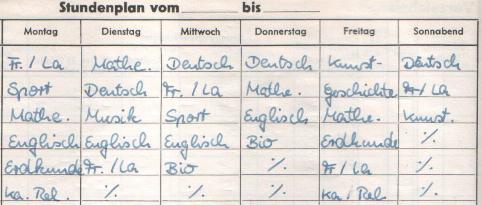 Stundenplan vom______ bis______
Montag Dienstag Mittwoch Donnerstag Freitag Sonnabend
Fr. / La Mathe. Deutsch Deutsch Kunst- Deutsch
Sport Deutsch Fr. / La Mathe. Geschichte Fr / La
Mathe. Musik Sport Englisch Mathe. Kunst.
Englisch Englisch Englisch Bio Erdkunde ·/.
Erdkunde Fr. / La Bio ·/. Fr / La ·/.
Ka. Rel. ·/. ·/. ·/. Ka / Rel ·/.